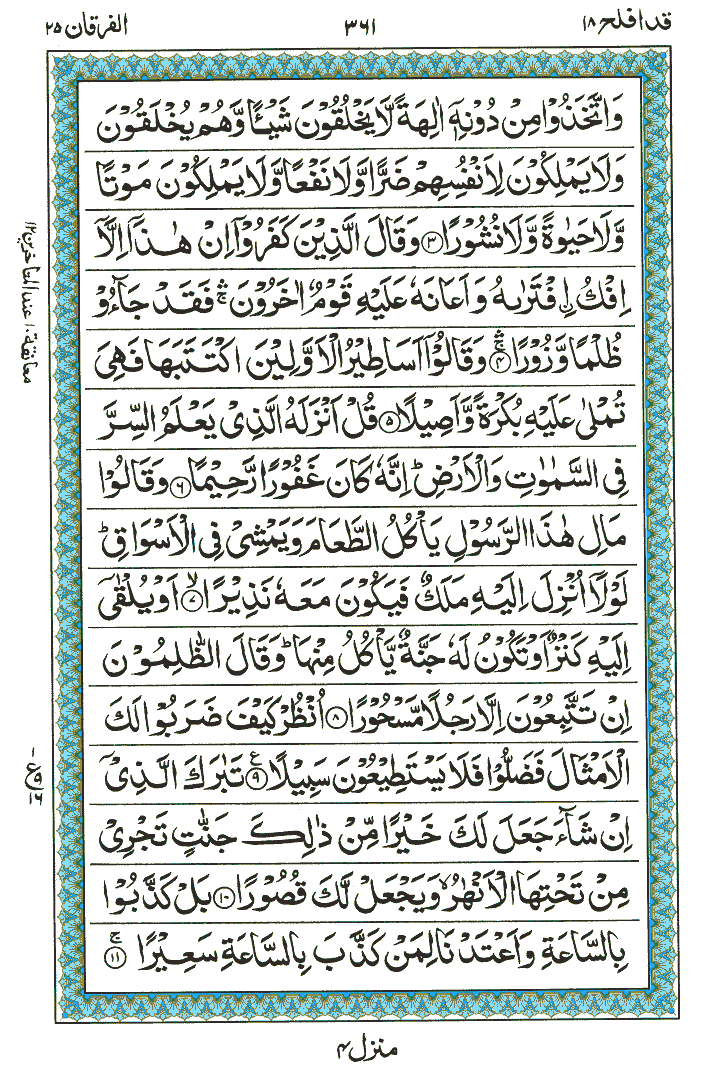 قد افلح ۱۸
۳۶۱
الفرقان ۲۵
وَاتَّخَذُوْا مِنْ دُوْنِهٖۤ اٰلِهَةً لَّا يَخْلُقُوْنَ شَيْـًٔا وَّهُمْ يُخْلَقُوْنَ
وَلَا يَمْلِكُوْنَ لِاَنْفُسِهِمْ ضَرًّا وَّلَا نَفْعًا وَّلَا يَمْلِكُوْنَ مَوْتًا
وَّلَا حَيٰوةً وَّلَا نُشُوْرًا ۝۳ وَقَالَ الَّذِيْنَ كَفَرُوْۤا اِنْ هٰذَاۤ اِلَّاۤ
اِفْكُ ۨافْتَرٰىهُ وَاَعَانَهٗ عَلَيْهِ قَوْمٌ اٰخَرُوْنَ ۛۚ فَقَدْ جَآءُوْ
ظُلْمًا وَّزُوْرًا ۛۚ ۝۴ وَقَالُوْۤا اَسَاطِيْرُ الْاَوَّلِيْنَ اكْتَتَبَهَا فَهِىَ
تُمْلٰى عَلَيْهِ بُكْرَةً وَّاَصِيْلًا ۝۵ قُلْ اَنْزَلَهُ الَّذِىْ يَعْلَمُ السِّرَّ
فِى السَّمٰوٰتِ وَالْاَرْضِ ؕ اِنَّهٗ كَانَ غَفُوْرًا رَّحِيْمًا ۝۶ وَقَالُوْا
مَالِ هٰذَا الرَّسُوْلِ يَاْكُلُ الطَّعَامَ وَيَمْشِىْ فِى الْاَسْوَاقِ ؕ
لَوْلَاۤ اُنْزِلَ اِلَيْهِ مَلَكٌ فَيَكُوْنَ مَعَهٗ نَذِيْرًا ۙ۝۷ اَوْ يُلْقٰۤى
اِلَيْهِ كَنْزٌ اَوْ تَكُوْنُ لَهٗ جَنَّةٌ يَّاْكُلُ مِنْهَا ؕ وَقَالَ الظّٰلِمُوْنَ
اِنْ تَتَّبِعُوْنَ اِلَّا رَجُلًا مَّسْحُوْرًا ۝۸ اُنْظُرْ كَيْفَ ضَرَبُوْا لَكَ
الْاَمْثَالَ فَضَلُّوْا فَلَا يَسْتَطِيْعُوْنَ سَبِيْلًا ۝۹ ع تَبٰرَكَ الَّذِىْۤ
اِنْ شَآءَ جَعَلَ لَكَ خَيْرًا مِّنْ ذٰلِكَ جَنّٰتٍ تَجْرِىْ
مِنْ تَحْتِهَا الْاَنْهٰرُ ۙ وَيَجْعَلْ لَّكَ قُصُوْرًا ۝۱۰ بَلْ كَذَّبُوْا
بِالسَّاعَةِ وَاَعْتَدْنَا لِمَنْ كَذَّبَ بِالسَّاعَةِ سَعِيْرًا ۚ۝۱۱
معانقة ۱۰ عند المتاخرین ۱۲
ع ۹ ۱۶
منزل ۴